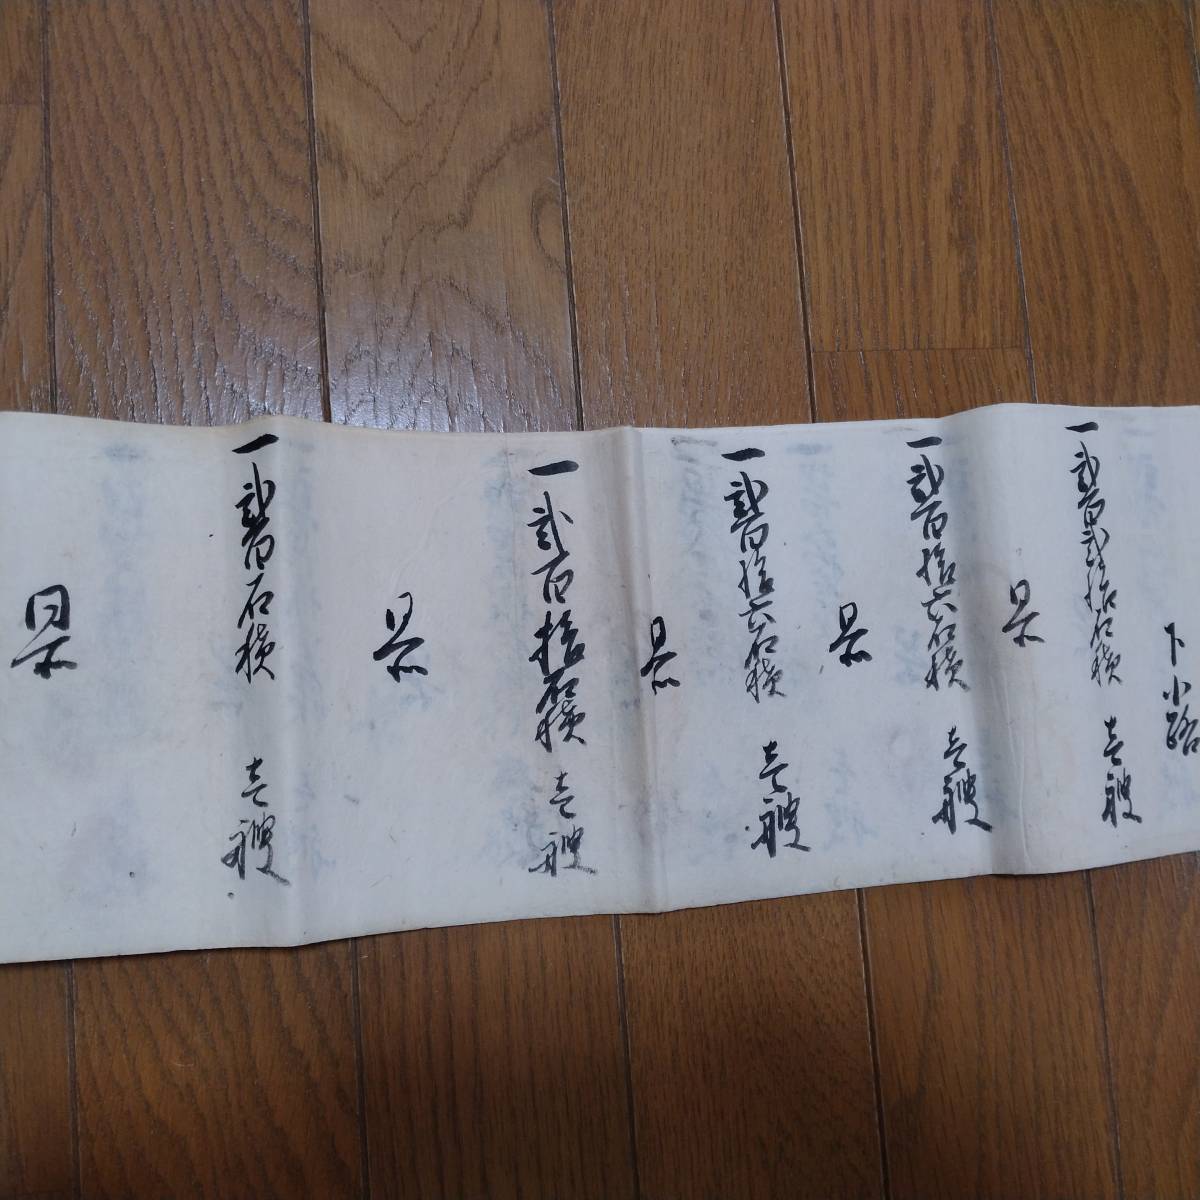 下小路
一 弐百弐拾石積 壱艘
同所
一 弐百拾六石積 壱艘
同所
一 弐百拾六石積 壱艘
同所
一 弐百拾石積 壱艘
同所
一 弐百石積 壱艘
同所